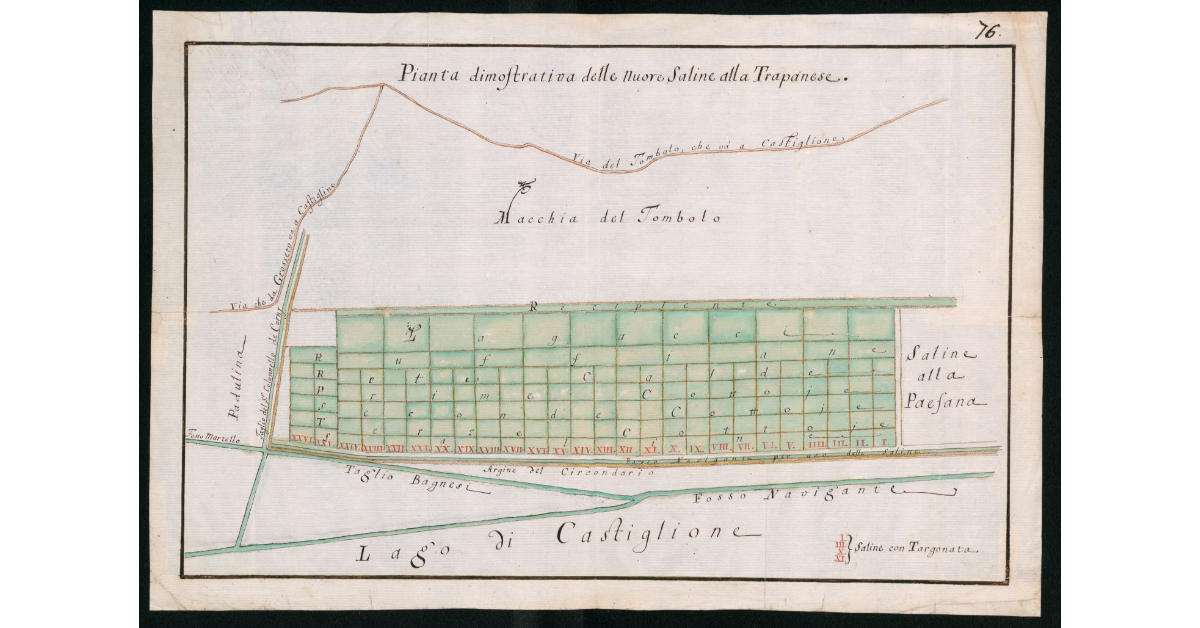 76.
Pianta dimostrativa delle nuove Saline alla Trapanese.
Via del Tombolo, che va a Castiglione
Macchia del Tombolo
Via che da Grosseto va a Castiglione
Padulina
Taglio del Colonnello de
Recipiente
Lagacci
Ruffiane
Retre Calde
P rime Cottoje
Seconde Cottoje
Terze Cottoje
XXVI. XXV. XXIV. XXIII. XXII. XXI. XX. XIX. XVIII. XVII. XVI. XV. XIV. XIII. XII. XI. X. IX. VIII. VII. VI. V. IIII. III. II. I.
Saline
alla
Paesana
Fosso Navigante per uso delle Saline
Argine del Circondario
Fosso Martello
Taglio Bagnesi
Fosso Navigante
Lago di Castiglione
I
III
X
XI
Saline con Targonata